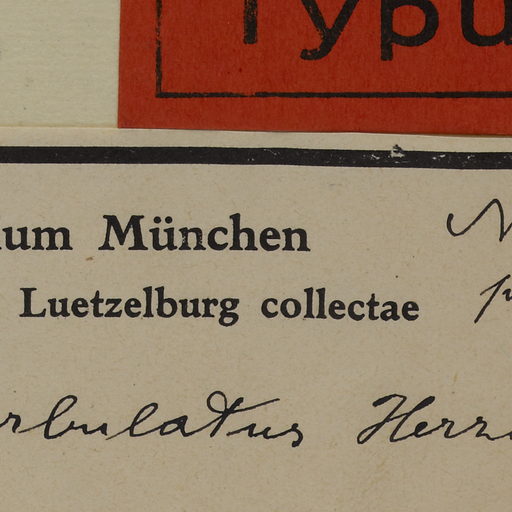 Typu
ium München
Luetzelburg collectae
rbulatus Herz